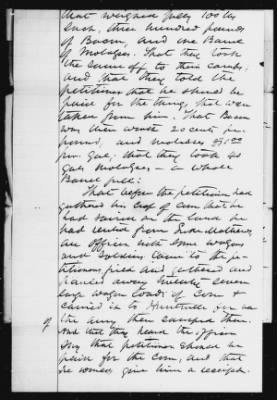 that weighed fully 100 lbs
each, three hundred pounds
of Bacon, and one Barrel
of Molasses. That they took
the same off to their camp,
and that they told the
petitioner that he should be
paid for the things that were
taken from him. That Bacon
was then worth 20 cents per
pound, and molasses $1.00
per Gal, that they took 40
Gals Molasses — a whole
Barrel full.
That before the petitioner had
gathered his crop of corn that he
had raised on the land he
had rented from
an officer with some wagons
and soldiers came to the pe-
titioners field and gathered and
hauled away twenty seven
large wagon loads of corn &
carried it to Huntsville
the army then camped there.
And that they heard the officer
say that petitioner should be
paid for the corn, and that
he would give him a receipt.